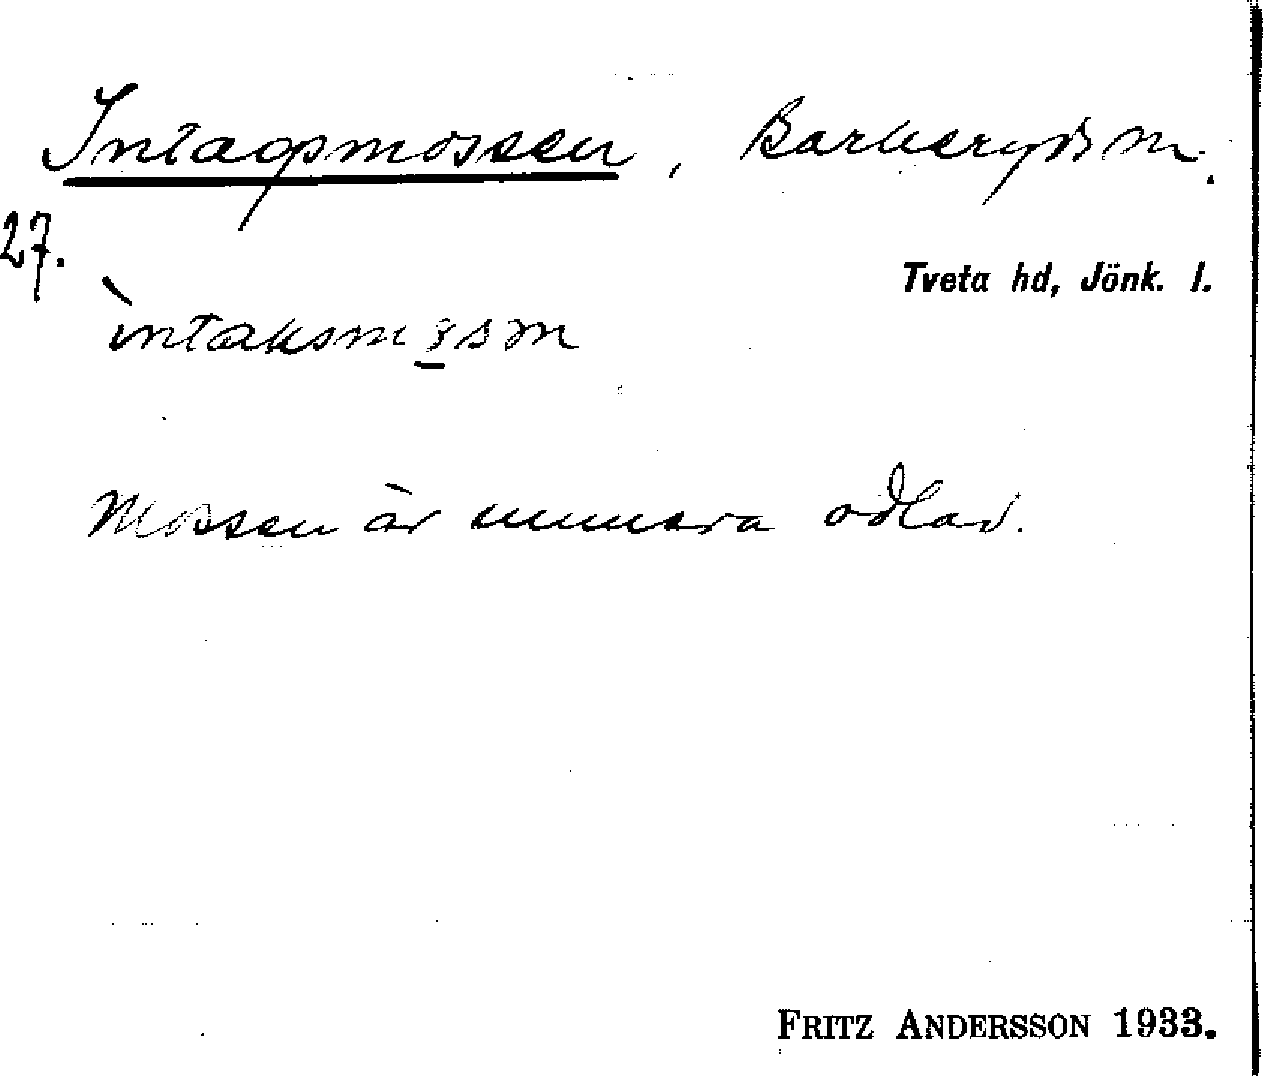 Intagsmossen, Barkeryds sn.
27.
Tveta hd, Jönk. l.
Mossen är numera odlad.
FRITZ ANDERSSON 1933.